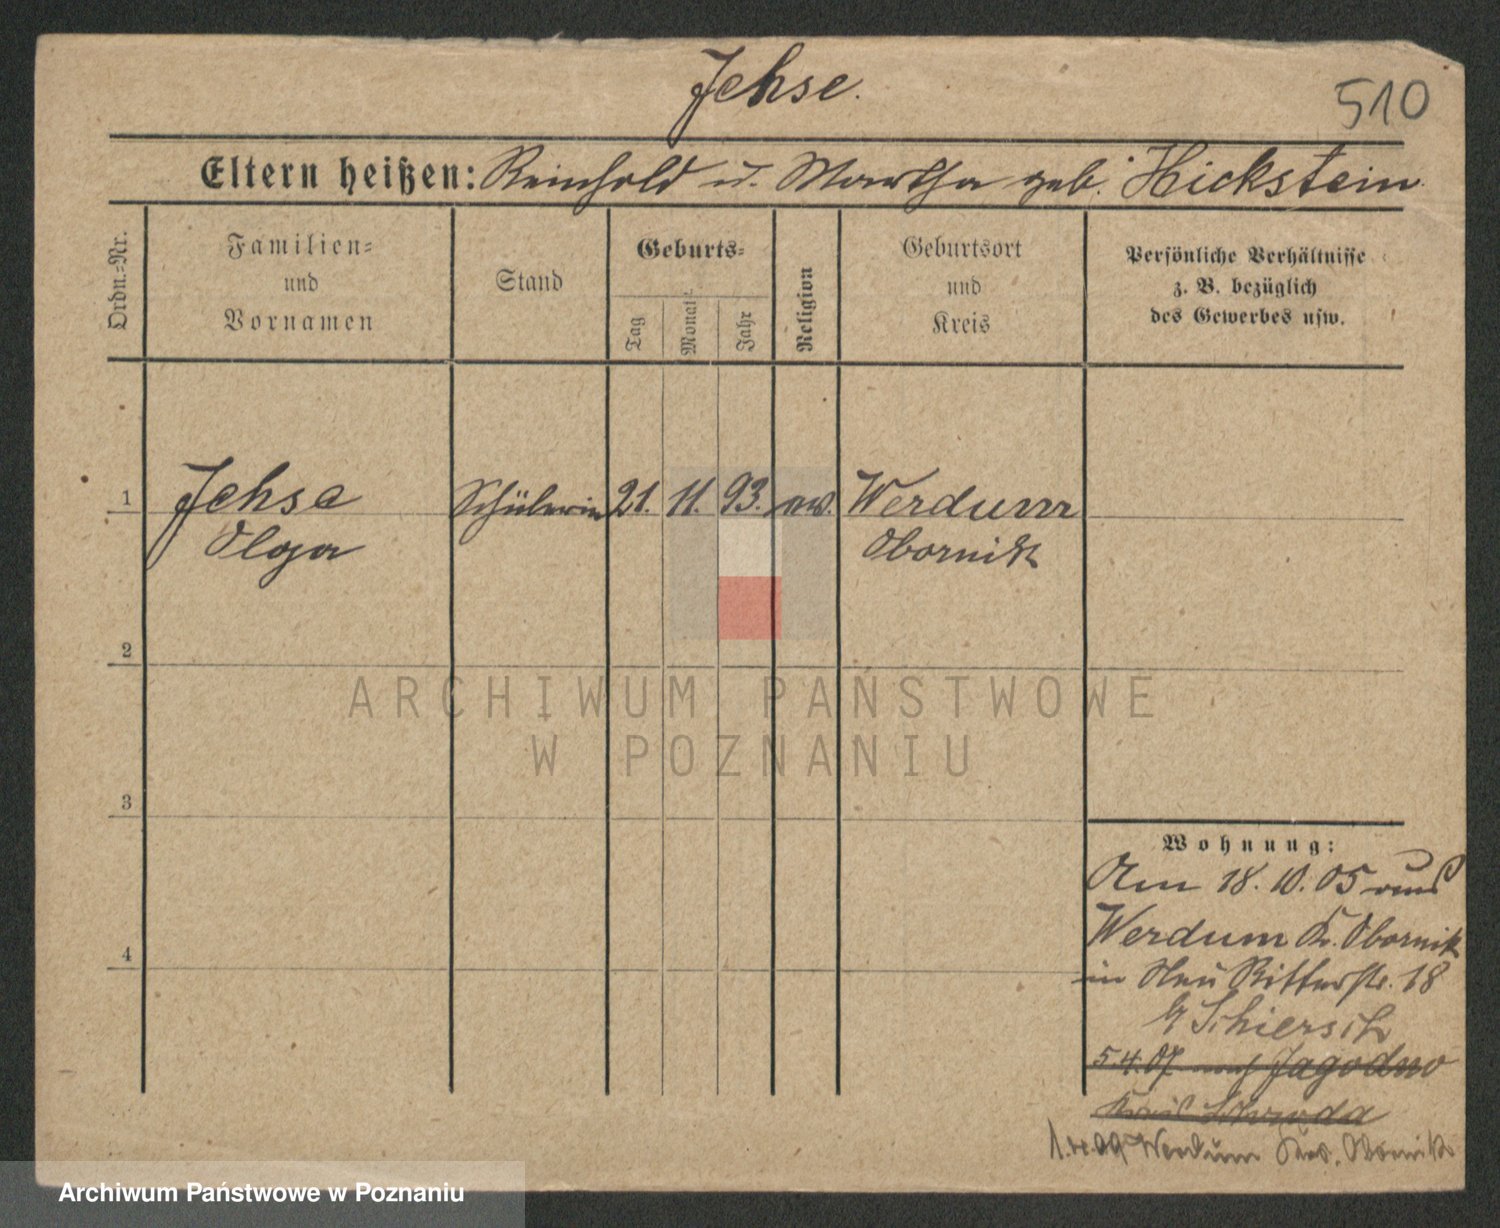 Jehse.
510
Eltern heißen: Reinhold u. Martha geb. Hickstein
Ordn.=Nr.
Familien=
und
Vornamen
Stand
Geburts=
Tag
Monat
Jahr
Religion
Geburtsort
und
Kreis
Persönliche Verhältnisse
z. B. bezüglich
des Gewerbes usw.
1
Jehse
Olga
Schülerin
21. 11. 93. ev.
Werdum
Obornik
2
ARCHIWUM PAŃSTWOWE
W POZNANIU
3
4
Wohnung:
Am 18. 10. 05 aus
Werdum Kr. Obornik
in Neu Ritterstr. 18
b/ Schiersch
5.4.07 nach Jagodno
Kreis Schroda
Werdum Krs. Obornik
Archiwum Państwowe w Poznaniu